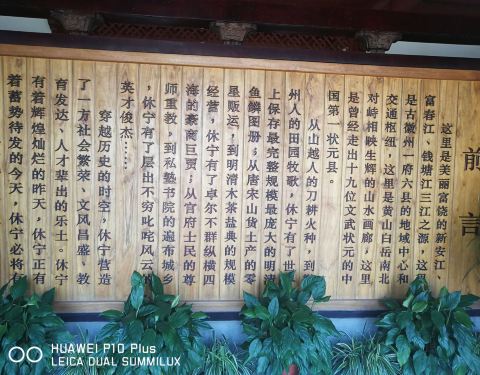 前言
这里是美丽富饶的新安江、
富春江、钱塘江三江之源,这
是古徽州一府六县的地域中心和
交通枢纽,这里是黄山白岳南北
对峙相映生辉的山水画廊,这里
是曾经走出十九位文武状元的中
国第一状元县。
从山越人的刀耕火种,到
州人的田园牧歌,休宁有了世
上保存最完整规模最庞大的明清
鱼鳞图册;从唐宋山货土产的零
星贩运,到明清木茶盐典的规模
经营,休宁有了卓尔不群纵横四
海的豪商巨贾;从官府士民的尊
师重教,到私塾书院的遍布城乡
,休宁有了层出不穷叱咤风云的
英才俊杰……
穿越历史的时空,休宁营造
了一方社会繁荣、文风昌盛、教
育发达、人才辈出的乐土。休宁
有着辉煌灿烂的昨天,休宁正有
着蓄势待发的今天,休宁必将
HUAWEI P10 Plus
LEICA DUAL SUMMILUX